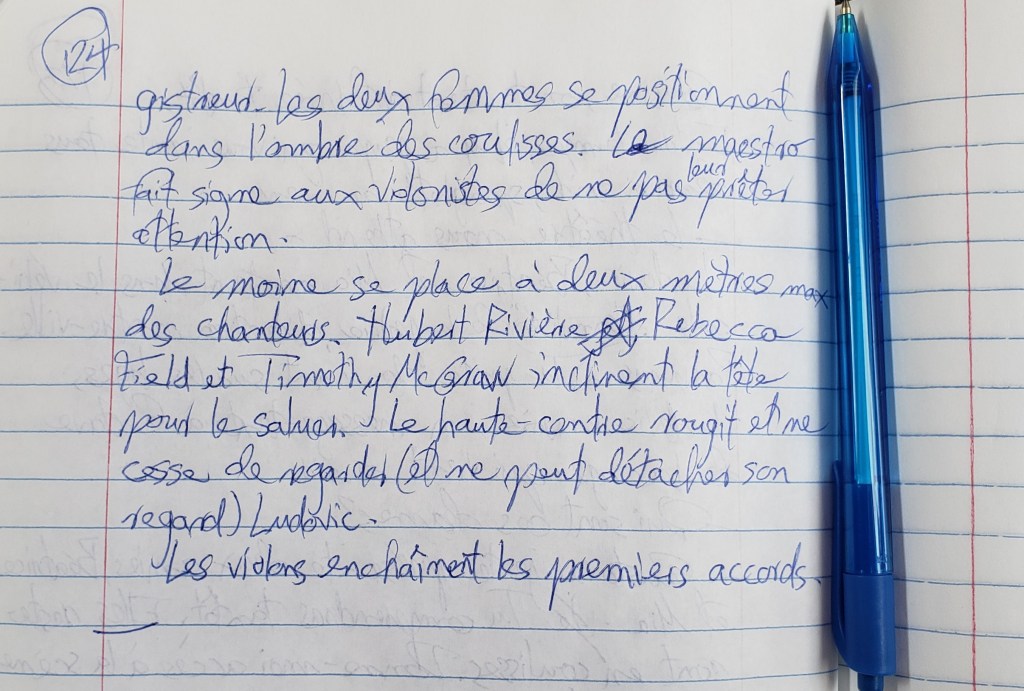 124
gistreur. Les deux femmes se positionnent
dans l'ombre des coulisses. Le maestro
fait signe aux violonistes de ne pas leur prêter
attention.
Le moine se place à deux mètres max
des chanteurs. Hubert Rivière, Rebecca
Field et Timothy McGraw inclinent la tête
pour le saluer. Le haute-contre rougit et ne
cesse de regarder (et ne peut détacher son
regard) Ludovic.
Les violons enchaînent les premiers accords.